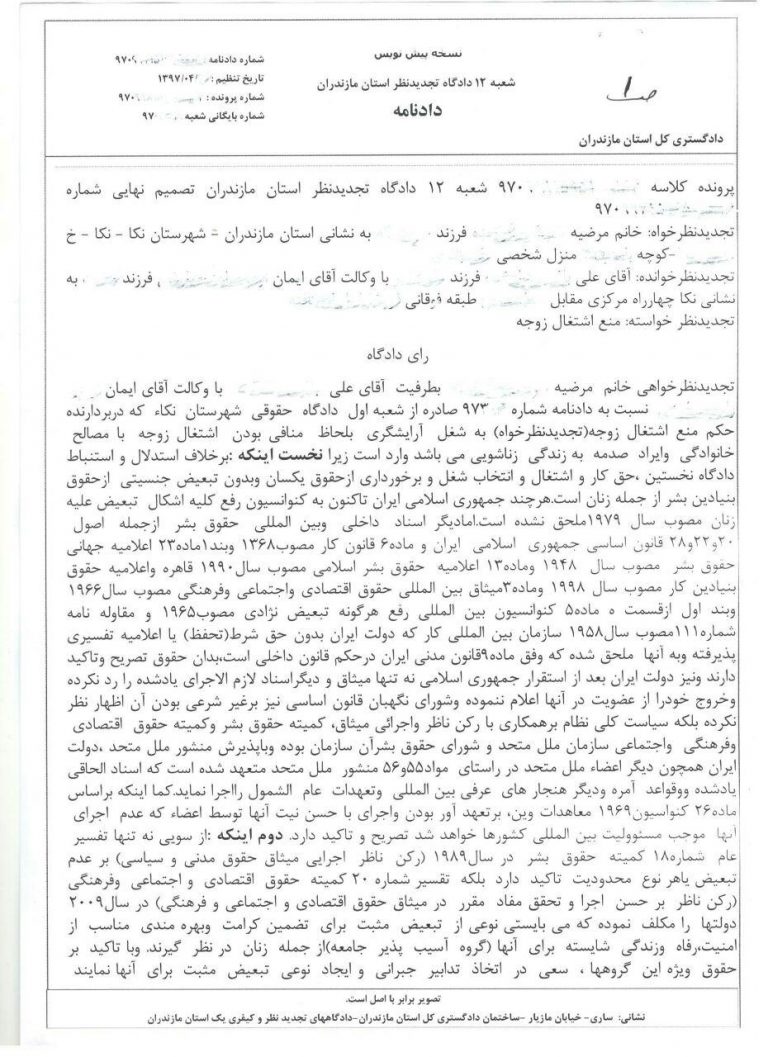 نسخه پیش نویس
شعبه ۱۲ دادگاه تجدیدنظر استان مازندران
دادنامه
شماره دادنامه : ۹۷۰۹
تاریخ تنظیم : ۱۳۹۷/۰۴/
شماره پرونده : ۹۷۰۹
شماره بایگانی شعبه : ۹۷
دادگستری کل استان مازندران
پرونده کلاسه ۹۷۰ شعبه ۱۲ دادگاه تجدیدنظر استان مازندران تصمیم نهایی شماره
۹۷۰
تجدیدنظرخواه: خانم مرضیه فرزند به نشانی استان مازندران - شهرستان نکا - نکا - خ
-کوچه منزل شخصی
تجدیدنظرخوانده: آقای علی فرزند با وکالت آقای ایمان فرزند به
نشانی نکا چهارراه مرکزی مقابل طبقه فوقانی
تجدیدنظر خواسته: منع اشتغال زوجه
رای دادگاه
تجدیدنظرخواهی خانم مرضیه بطرفیت آقای علی با وکالت آقای ایمان
نسبت به دادنامه شماره ۹۷۳ صادره از شعبه اول دادگاه حقوقی شهرستان نکاء که دربردارنده
حکم منع اشتغال زوجه(تجدیدنظرخواه) به شغل آرایشگری بلحاظ منافی بودن اشتغال زوجه با مصالح
خانوادگی وایراد صدمه به زندگی زناشویی می باشد وارد است زیرا نخست اینکه :برخلاف استدلال و استنباط
دادگاه نخستین ،حق کار و اشتغال و انتخاب شغل و برخورداری ازحقوق یکسان وبدون تبعیض جنسیتی ازحقوق
بنیادین بشر از جمله زنان است.هرچند جمهوری اسلامی ایران تاکنون به کنوانسیون رفع کلیه اشکال تبعیض علیه
زنان مصوب سال ۱۹۷۹ملحق نشده است.امادیگر اسناد داخلی وبین المللی حقوق بشر ازجمله اصول
۲۰و۲۲و۲۸ قانون اساسی جمهوری اسلامی ایران و ماده۶ قانون کار مصوب۱۳۶۸ وبند۱ماده۲۳ اعلامیه جهانی
حقوق بشر مصوب سال ۱۹۴۸ وماده۱۳ اعلامیه حقوق بشر اسلامی مصوب سال۱۹۹۰ قاهره واعلامیه حقوق
بنیادین کار مصوب سال ۱۹۹۸ وماده۳میثاق بین المللی حقوق اقتصادی واجتماعی وفرهنگی مصوب سال۱۹۶۶
وبند اول ازقسمت ه ماده۵ کنوانسیون بین المللی رفع هرگونه تبعیض نژادی مصوب۱۹۶۵ و مقاوله نامه
شماره۱۱۱مصوب سال۱۹۵۸ سازمان بین المللی کار که دولت ایران بدون حق شرط(تحفظ) یا اعلامیه تفسیری
پذیرفته وبه آنها ملحق شده که وفق ماده۹قانون مدنی ایران درحکم قانون داخلی است،بدان حقوق تصریح وتاکید
دارند ونیز دولت ایران بعد از استقرار جمهوری اسلامی نه تنها میثاق و دیگراسناد لازم الاجرای یادشده را رد نکرده
وخروج خودرا از عضویت در آنها اعلام ننموده وشورای نگهبان قانون اساسی نیز برغیر شرعی بودن آن اظهار نظر
نکرده بلکه سیاست کلی نظام برهمکاری با رکن ناظر واجرائی میثاق، کمیته حقوق بشر وکمیته حقوق اقتصادی
وفرهنگی واجتماعی سازمان ملل متحد و شورای حقوق بشرآن سازمان بوده وباپذیرش منشور ملل متحد ،دولت
ایران همچون دیگر اعضاء ملل متحد در راستای مواد۵۵و۵۶ منشور ملل متحد متعهد شده است که اسناد الحاقی
یادشده ووقواعد آمره ودیگر هنجار های عرفی بین المللی وتعهدات عام الشمول رااجرا نماید.کما اینکه براساس
ماده۲۶ کنواسیون۱۹۶۹ معاهدات وین، برتعهد آور بودن واجرای با حسن نیت آنها توسط اعضاء که عدم اجرای
آنها موجب مسئوولیت بین المللی کشورها خواهد شد تصریح و تاکید دارد. دوم اینکه :از سویی نه تنها تفسیر
عام شماره۱۸ کمیته حقوق بشر در سال۱۹۸۹ (رکن ناظر اجرایی میثاق حقوق مدنی و سیاسی) بر عدم
تبعیض یاهر نوع محدودیت تاکید دارد بلکه تفسیر شماره ۲۰ کمیته حقوق اقتصادی و اجتماعی وفرهنگی
(رکن ناظر بر حسن اجرا و تحقق مفاد مقرر در میثاق حقوق اقتصادی و اجتماعی و فرهنگی) در سال۲۰۰۹
دولتها را مکلف نموده که می بایستی نوعی از تبعیض مثبت برای تضمین کرامت وبهره مندی مناسب از
امنیت،رفاه وزندگی شایسته برای آنها (گروه آسیب پذیر جامعه)از جمله زنان در نظر گیرند. وبا تاکید بر
حقوق ویژه این گروهها ، سعی در اتخاذ تدابیر جبرانی و ایجاد نوعی تبعیض مثبت برای آنها نمایند
تصویر برابر با اصل است.
نشانی: ساری- خیابان مازیار -ساختمان دادگستری کل استان مازندران-دادگاههای تجدید نظر و کیفری یک استان مازندران